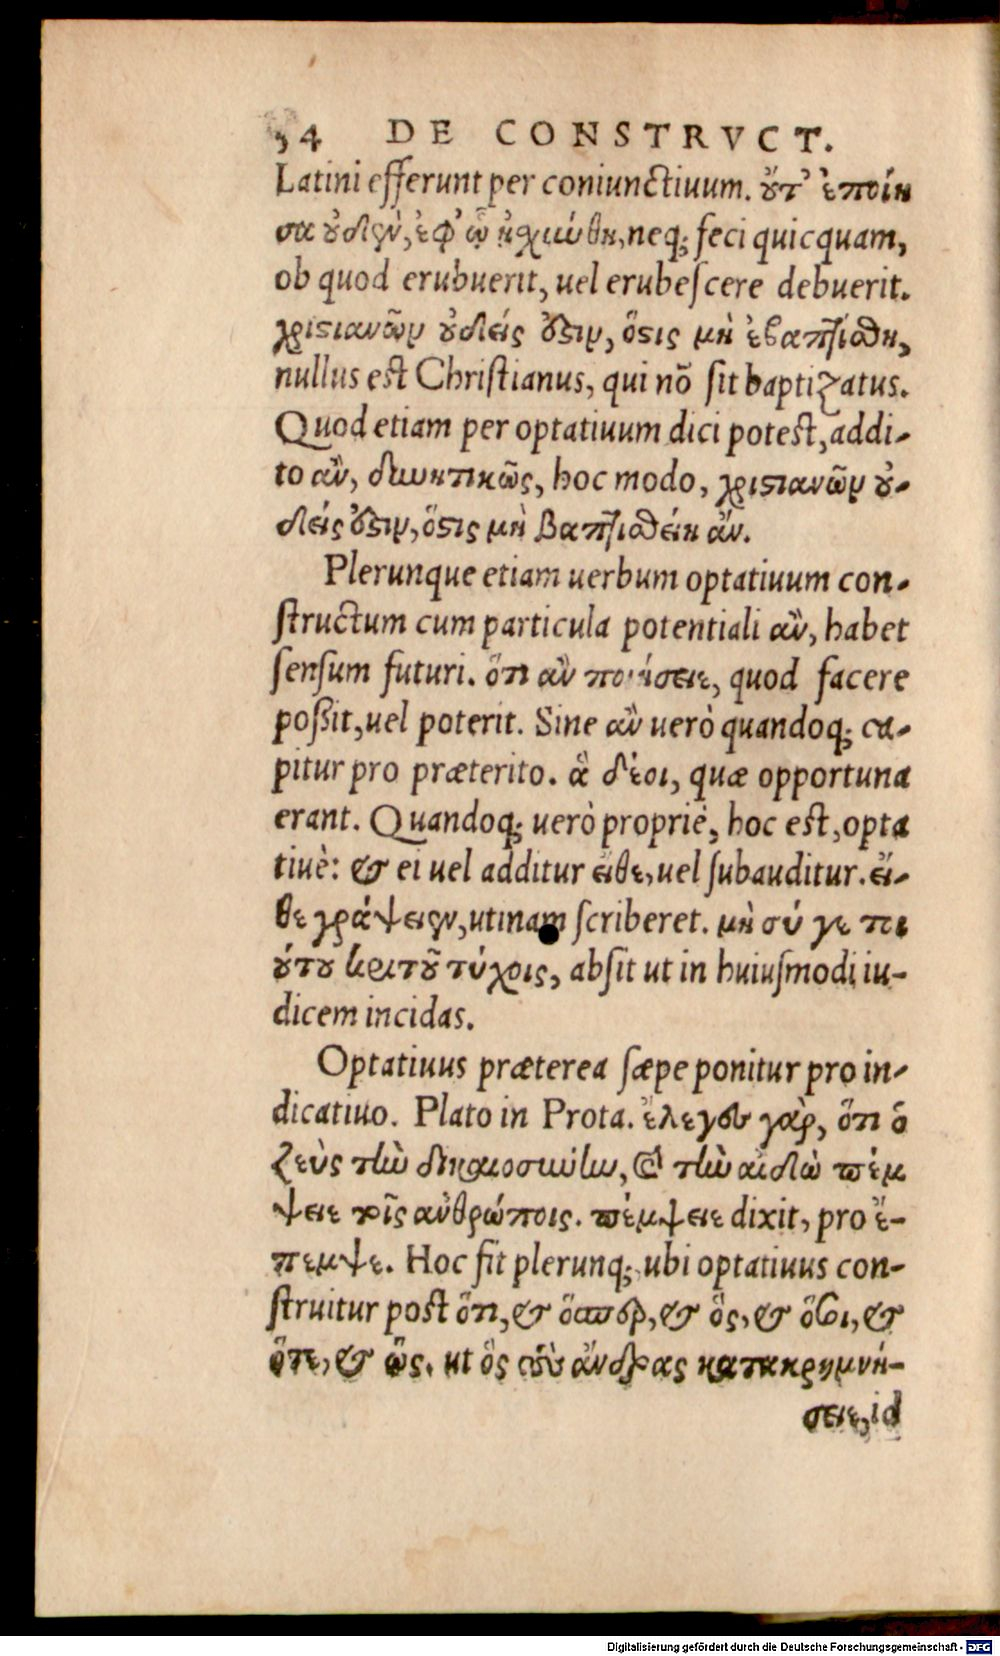 54 DE CONSTRVCT.
Latini efferunt per coniunctiuum. οὔτ' ἐποίη
σα οὐδὲν, ἐφ' ᾧ ᾐσχύνθη, neq; feci quicquam,
ob quod erubuerit, uel erubescere debuerit.
χριστιανῶν οὐδείς ἐστιν, ὅστις μὴ ἐβαπτίσθη,
nullus est Christianus, qui nō sit baptizatus.
Quod etiam per optatiuum dici potest, addi-
to ἂν, δυνητικῶς, hoc modo, χριστιανῶν οὐ-
δείς ἐστιν, ὅστις μὴ βαπτισθείη ἄν.
Plerunque etiam uerbum optatiuum con-
structum cum particula potentiali ἂν, habet
sensum futuri. ὅτι ἂν ποιήσειε, quod facere
possit, uel poterit. Sine ἂν uerò quandoq; ca-
pitur pro præterito. ἃ δέοι, quæ opportuna
erant. Quandoq; uerò propriè, hoc est, opta
tiuè: & ei uel additur εἴθε, uel subauditur. εἴ-
θε γράψειεν, utinam scriberet. μὴ σύ γε τοι
ούτου κριτοῦ τύχοις, absit ut in huiusmodi iu-
dicem incidas.
Optatiuus præterea sæpe ponitur pro in-
dicatiuo. Plato in Prota. ἔλεγον γὰρ, ὅτι ὁ
ζεὺς τὴν δικαιοσύνην, καὶ τὴν αἰδὼ πέμ
ψειε τοῖς ἀνθρώποις. πέμψειε dixit, pro ἔ-
πεμψε. Hoc fit plerunq; ubi optatiuus con-
struitur post ὅτι, & ὅπερ, & ὃς, & ὅσοι, &
ὅτε, & ὡς. ut ὃς τοὺς ἄνδρας κατακρημνή-
σειε, id
Digitalisierung gefördert durch die Deutsche Forschungsgemeinschaft - DFG